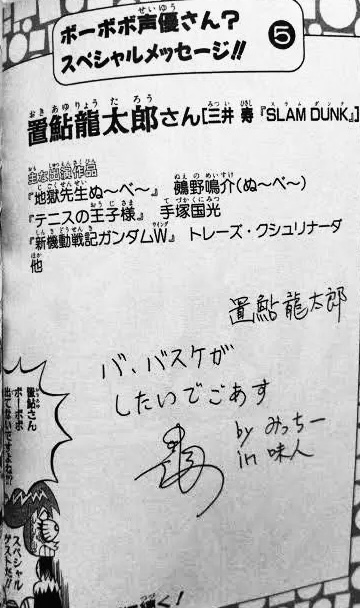 ボーボボ声優さん?
スペシャルメッセージ!!
⑤
置鮎龍太郎さん[三井 寿『SLAM DUNK』]
主な出演作品
『地獄先生ぬ〜べ〜』 鵺野鳴介(ぬ〜べ〜)
『テニスの王子様』 手塚国光
『新機動戦記ガンダムW』 トレーズ・クシュリナーダ
他
置鮎龍太郎
バ、バスケが
したいでごあす
by みっちー
in 味人
置鮎さん
ボーボボ
出てないですよね!?
スペシャル
ゲストだ!!
続く!